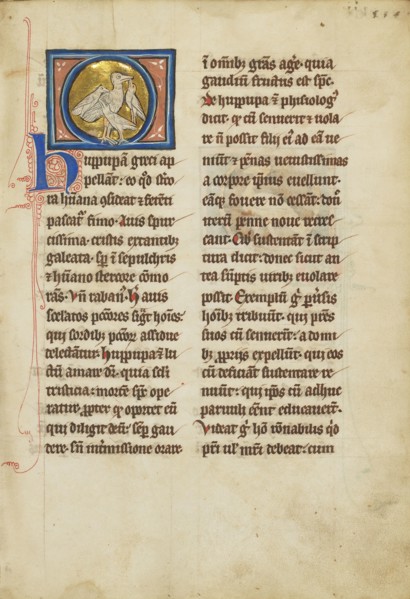 Huppupā greci ap
pellāt: eo qd stco
ra hūana ɔsideat ⁊ fetēti
pascat̉ fimo. Auis spur
cissima. cristis extantib;
galeata. sp̄ ī sepulchris
⁊ hūano stercore cōmo
rās. Vn̄ raban᷒. H̄ auis
scelatos pc̄ores sigt̄ hoīes.
qui sordib; pc̄oꝝ assidue
delectant̉. huppupa ⁊ lu
ctū amare dr̄. quia scl̄i
tristicia: mortē sp̄c ope
ratur. ꝓpter qd oportet eū
qui diligit deū: sēp gau
dere. sn̄ int̉missione orare.
ī omīb; grās age. quia
gaudiū fructus est sp̄c.
De huppupa ⁊ phisiolog᷒
dicit. qd cū senuerit ⁊ uola
re n̄ possit filii ei᷒ ad eā ue
niūt ⁊ pēnas uetustissimas
a corpore ip̄ius euellunt.
eāq; fouere nō cessāt. don̄
iterū penne noue recres
cant. Cib᷒ sustentāt
dicit: donec sicut an
tea sūptis uirib; euolare
possit. Exemplū g̊
hoīb; tribuūt. qui pa̅res
suos cū senuerīt: a domi
b; ꝓpriis expellūt. qui eos
cū deficiāt sustentare re
nuūt: qui ip̄os cū adhuc
paruuli eēnt educauerūt.
Videat g̊ hō rōnabilis qd
pr̄i ul᷒ mr̄i debeat: cum